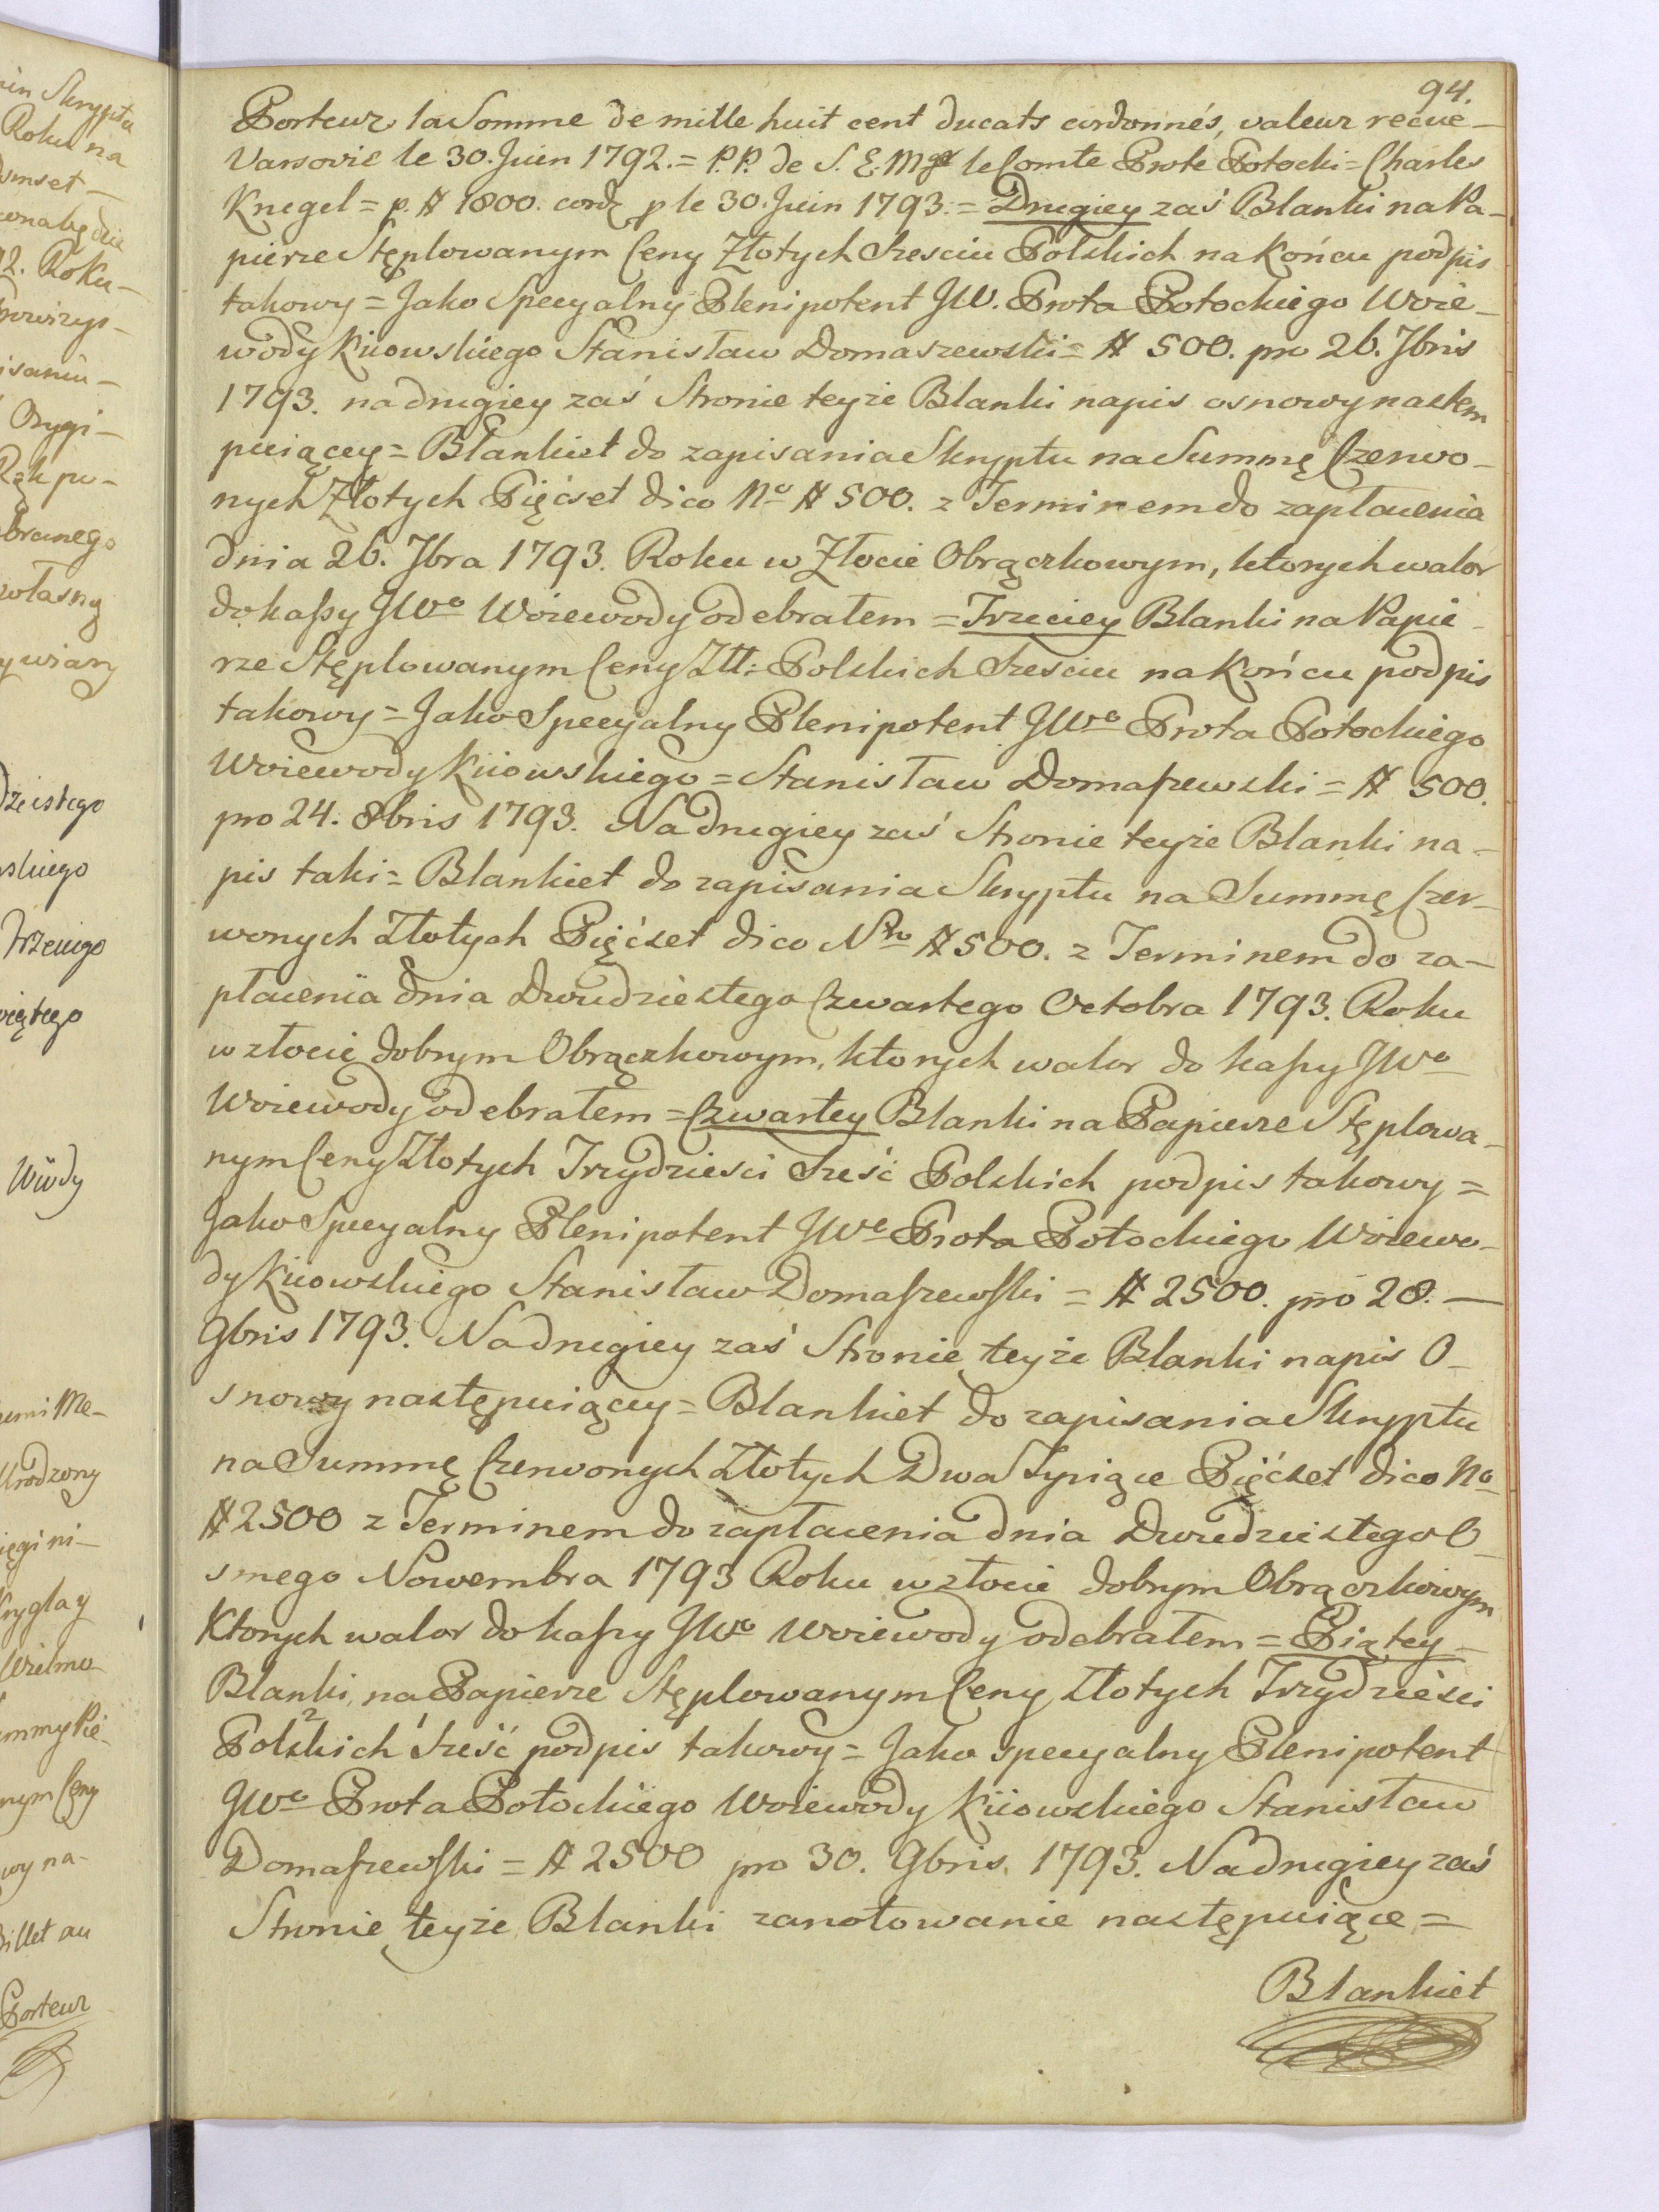 94.
Porteur la Somme de mille huit cent ducats cordonnés, valeur recue —
Varsovie le 30. Juin 1792. = P.P. de S. E. Mgr le Comte Prote Potocki = Charles
Knegel = p. # 1800. cord p le 30. Juin 1793. = Drugiey zaś Blanki na Pa-
pierze Stęplowanym Ceny Złotych Szesciu Polskich na Końcu podpis
takowy = Jako Specyalny Plenipotent JW. Prota Potockiego Woie-
wody Kiiowskiego Stanisław Domaszewski = # 500. pro 26. 7bris
1793. na drugiey zaś Stronie teyże Blanki napis osnowy nastem
puiącey = Blankiet do zapisania Skryptu na Summę Czerwo-
nych Złotych Pięćset dico No # 500. z Terminem do zapłacenia
dnia 26. 7bra 1793. Roku w Złocie Obrączkowym, ktorych walor
do kassy JWo Woiewody odebrałem = Trzeciey Blanki na Papie-
rze Stęplowanym Ceny Złł: Polskich Szesciu na Końcu podpis
takowy = Jako Specyalny Plenipotent JWo Prota Potockiego
Woiewody Kiiowskiego = Stanisław Domaszewski = # 500.
pro 24. 8bris 1793. Na drugiey zaś Stronie teyże Blanki na-
pis taki = Blankiet do zapisania Skryptu na Summę Czer-
wonych Złotych Pięćset dico Nro # 500. z Terminem do za-
płacenia dnia Dwudziestego Czwartego Octobra 1793. Roku
w złocie dobrym Obrączkowym, ktorych walor do kassy JWo
Woiewody odebrałem = Czwartey Blanki na Papierze Stęplowa-
nym Ceny Złotych Trzydziesci Sześć Polskich podpis takowy =
Jako Specyalny Plenipotent JWo Prota Potockiego Woiewo-
dy Kiiowskiego Stanisław Domaszewski = # 2500. pro 28. —
9bris 1793. Na drugiey zaś Stronie teyże Blanki napis O-
snowy następuiącey = Blankiet do zapisania Skryptu
na Summę Czerwonych Złotych Dwa Tysiące Pięćset dico No
# 2500 z Terminem do zapłacenia dnia Dwudziestego O-
smego Nowembra 1793 Roku w złocie dobrym Obrączkowym
Ktorych walor do kassy JWo Woiewody odebrałem = Piątey —
Blanki, na Papierze Stęplowanym Ceny Złotych Trzydziesci
Polskich 2 Sześć 1 podpis takowy = Jako specyalny Plenipotent
JWo Prota Potockiego Woiewody Kiiowskiego Stanisław
Domaszewski = # 2500 pro 30. 9bris. 1793. Na drugiey zaś
Stronie teyże Blanki zanotowanie następuiące =
Blankiet